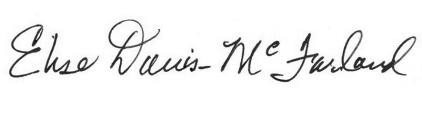 Elise Davis-McFarland